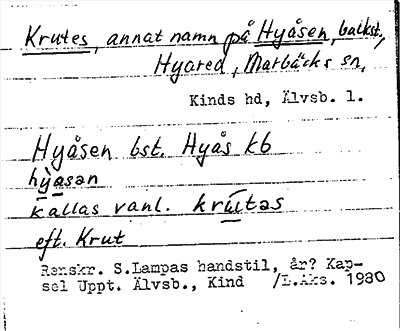 Krutes, annat namn på Hyåsen, backst.,
Hyared, Marbäcks sn,
Kinds hd, Älvsb. l.
Hyåsen bst. Hyås kb
hỳasan
kallas vanl. krūtəs
eft. Krut
Renskr. S.Lampas handstil, år? Kap-
sel Uppt. Älvsb., Kind /L.Aks. 1980